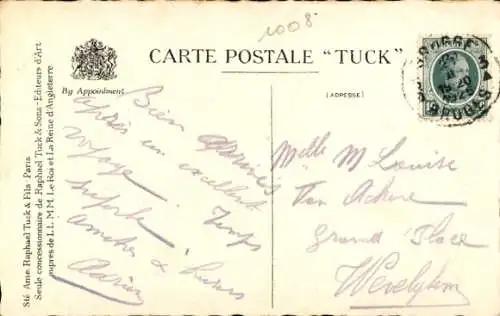 1008
CARTE POSTALE "TUCK"
By Appointment
(ADRESSE)
BRUGGE
BRUGES
Sté Ame Raphael Tuck & Fils - Paris
Seule concessionnaire de Raphael Tuck & Sons - Editeurs d'Art
auprès de L.L. M.M. Le Roi et La Reine d'Angleterre
Bien arrivés
après un excellent
voyage. Temps
superbe.
amitiés &
Melle M Louise
Van Ackere
Grand'Place
Wevelghem